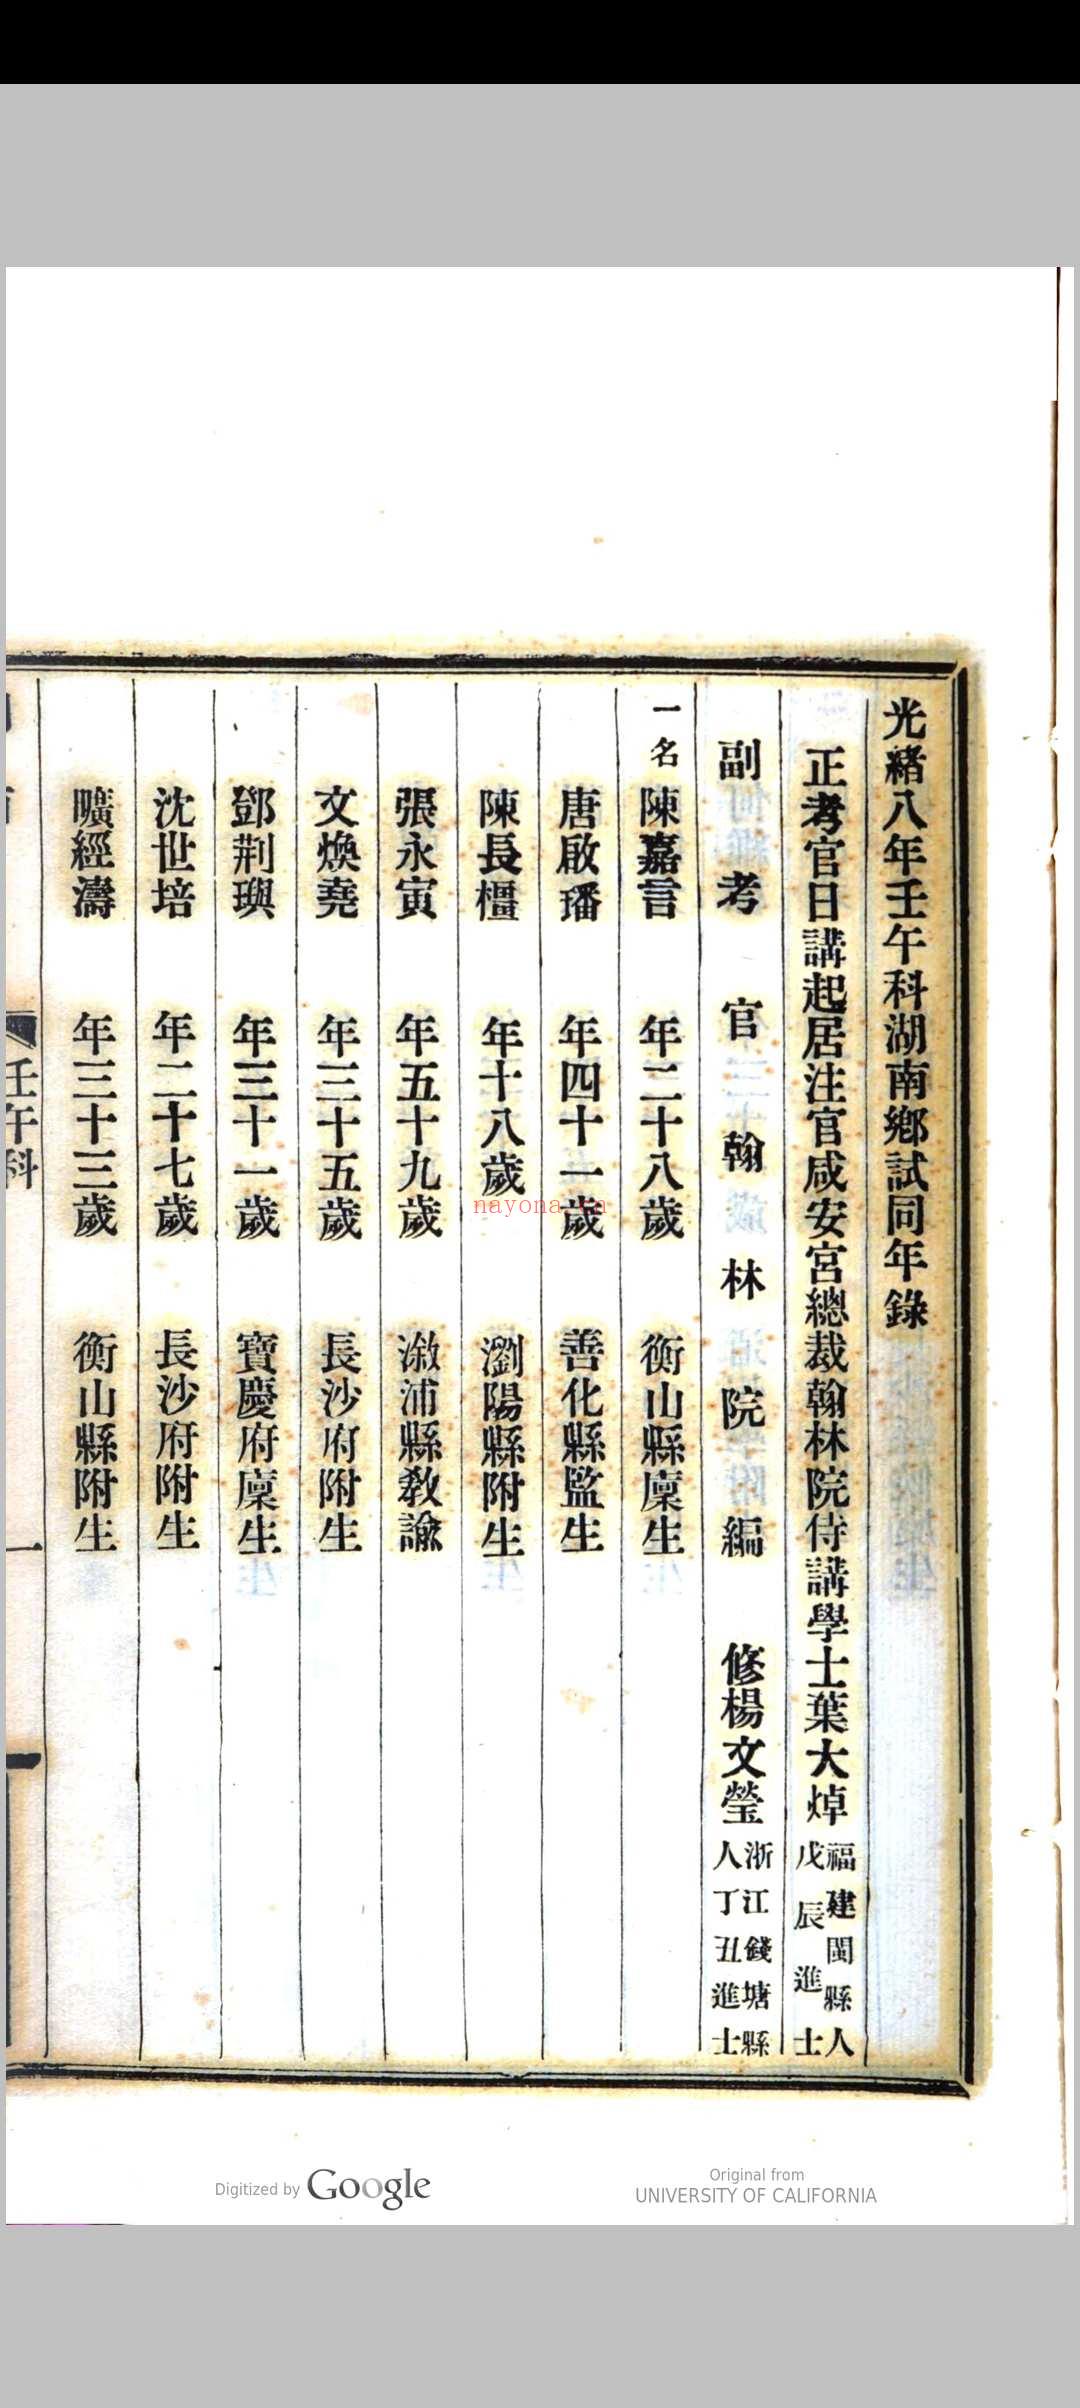 光緒八年壬午科湖南鄉試同年錄
正考官日講起居注官咸安宮總裁翰林院侍講學士葉大焯
福建閩縣人
戊辰進士
副考官翰林院編修楊文瑩
浙江錢塘縣
人丁丑進士
一名陳嘉言 年二十八歲 衡山縣廩生
唐啟璠 年四十一歲 善化縣監生
陳長橿 年十八歲 瀏陽縣附生
張永寅 年五十九歲 漵浦縣教諭
文煥堯 年三十五歲 長沙府附生
鄧荊璵 年三十一歲 寶慶府廩生
沈世培 年二十七歲 長沙府附生
曠經濤 年三十三歲 衡山縣附生
壬午科 一
nayona.cn
Digitized by Google
Original from
UNIVERSITY OF CALIFORNIA